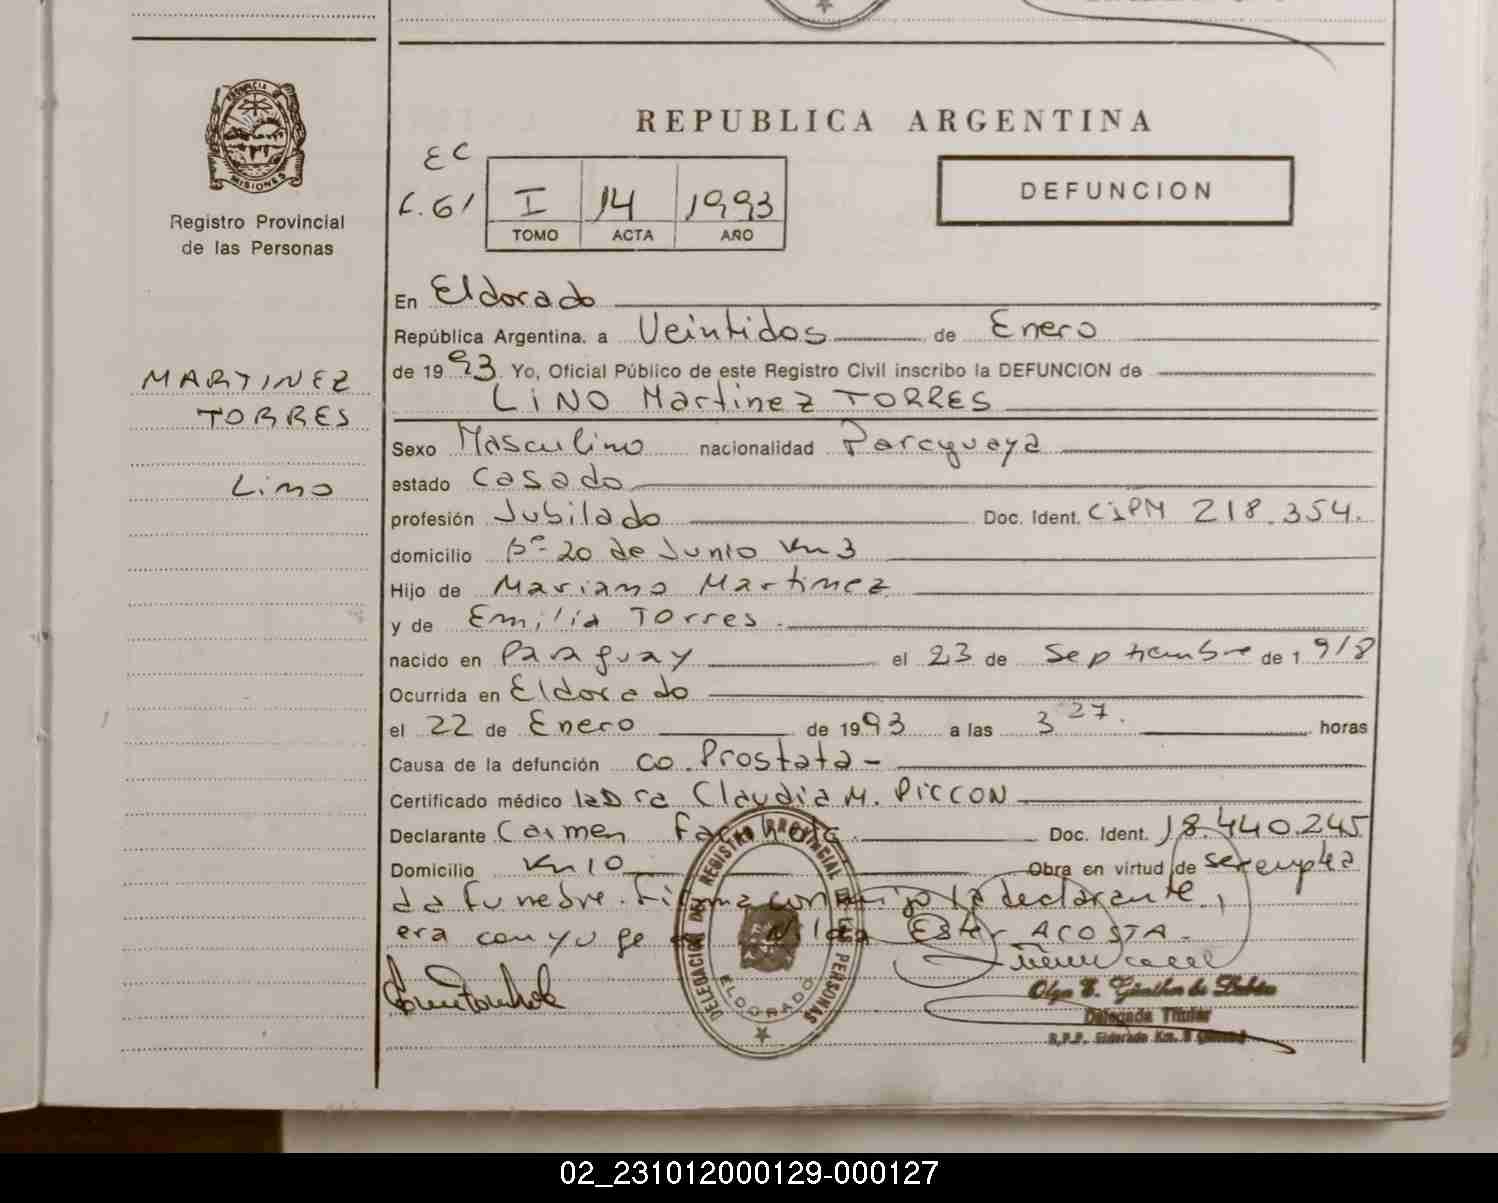 PROVINCIA D
MISIONES
Registro Provincial
de las Personas
REPUBLICA ARGENTINA
EC
F. 61
I 14 1993
TOMO ACTA AÑO
DEFUNCION
MARTINEZ
TORRES
Lino
En Eldorado
República Argentina, a Veintidos de Enero
de 1993. Yo, Oficial Público de este Registro Civil inscribo la DEFUNCION de
LiNO Martinez TORRES
Sexo Masculino nacionalidad Paraguaya
estado casado
profesión Jubilado Doc. Ident. CIPM 218.354.
domicilio Bº 20 de Junio Km 3
Hijo de Mariano Martinez
y de Emilia Torres.
nacido en Paraguay el 23 de Septiembre de 1918
Ocurrida en Eldorado
el 22 de Enero de 1993 a las 3 27. horas
Causa de la defunción co. Prostata-
Certificado médico la Dra Claudia M. PICCON
Declarante Carmen Doc. Ident. 18.440.245
Domicilio Km 10 Obra en virtud de ser emplea
da funebre. Firma conmigo la declarante,
era conyuge de Nilda Ester ACOSTA.
DELEGACION DEL REGISTRO PROVINCIAL DE LAS PERSONAS
ELDORADO
Olga E. Günther de
Delegada Titular
R.P.P. Eldorado Km. 9
02_231012000129-000127